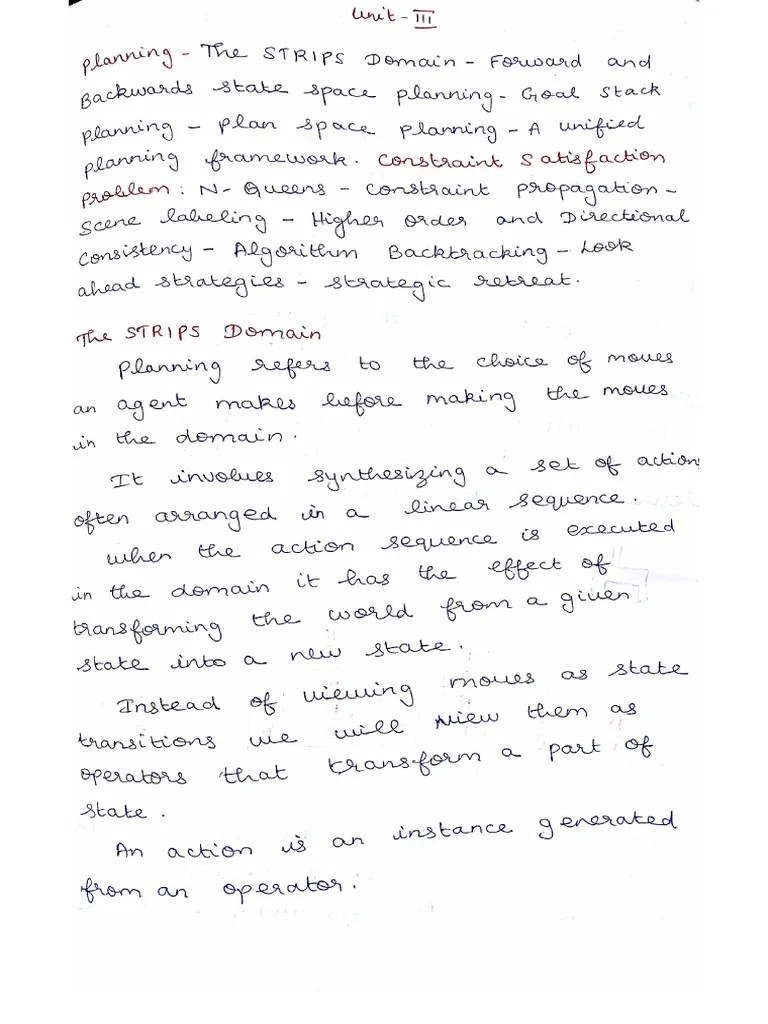 Unit - III
Planning - The STRIPS Domain - Forward and
Backwards state space planning - Goal Stack
planning - plan space planning - A unified
planning framework. Constraint Satisfaction
problem : N- Queens - constraint propagation -
scene labeling - Higher order and Directional
consistency - Algorithm Backtracking - Look
ahead strategies - strategic retreat.
The STRIPS Domain
Planning refers to the choice of moves
an agent makes before making the moves
in the domain.
It involves synthesizing a set of actions
often arranged in a linear sequence.
when the action sequence is executed
in the domain it has the effect of
transforming the world from a given
state into a new state.
Instead of viewing moves as state
transitions we will view them as
operators that transform a part of
state.
An action is an instance generated
from an operator.